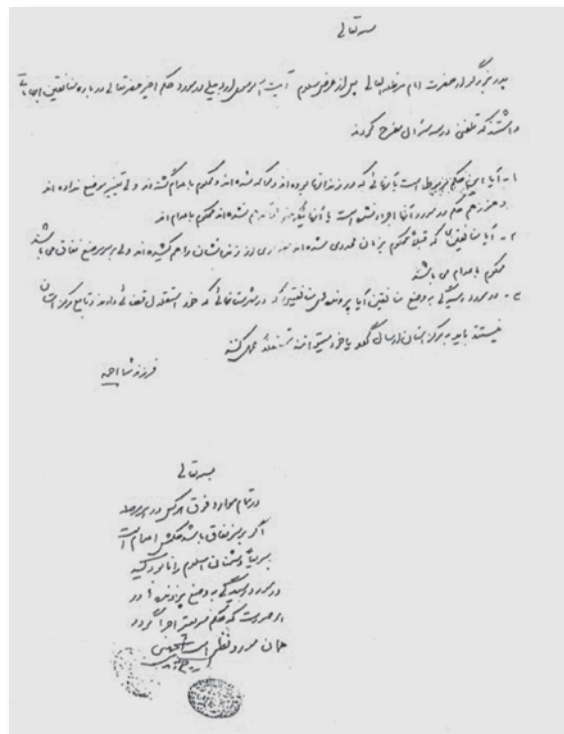 بسمه تعالی
پدر بزرگوار حضرت امام مدظله العالی پس از عرض سلام آیت الله موسوی اردبیلی در مورد حکم اخیر حضرتعالی درباره منافقین ابهاماتی
داشتند که تلفنی در سه سؤال مطرح کردند
۱- آیا این حکم مربوط است به آنهائی که در زندانها بوده‌اند و محاکمه شده‌اند و محکوم به اعدام گشته‌اند ولی تغییر موضع نداده‌اند
و هنوز هم حکم در مورد آنها اجرا نشده است یا آنهائیکه حتی محاکمه هم نشده‌اند محکوم به اعدام‌اند
۲- آیا منافقین که قبلاً محکوم بزندان محدود شده‌اند و مقداری از زندانشان را هم کشیده‌اند ولی بر سر موضع نفاق می‌باشند
محکوم به اعدام می‌باشند
۳- در مورد رسیدگی به وضع منافقین آیا پرونده‌های منافقینی که در شهرستانهائی که خود استقلال قضائی دارند و تابع مرکز استان
نیستند باید به مرکز استان ارسال گردد یا خود میتوانند مستقلاً عمل کنند
فرزند شما احمد
بسمه تعالی
در تمام موارد فوق هر کس در هر مرحله
اگر بر سر نفاق باشد حکمش اعدام است
سریعاً دشمنان اسلام را نابود کنید
در مورد رسیدگی به وضع پرونده‌ها در
هر صورت که حکم سریعتر اجرا گردد
همان مورد نظر است